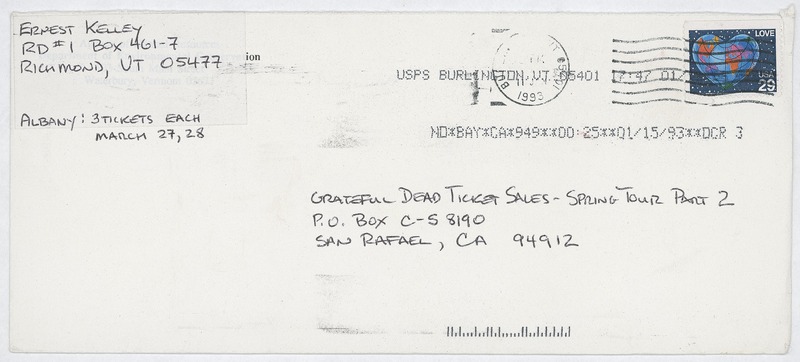 ERNEST KELLEY
RD #1 BOX 461-7
RICHMOND, VT 05477
ion
ALBANY: 3 TICKETS EACH
MARCH 27, 28
USPS BURLINGTON, VT 05401 17:47 01/
1993
LOVE
USA
29
ND*BAY*CA*949**00:25**01/15/93**OCR 3
GRATEFUL DEAD TICKET SALES - SPRING TOUR PART 2
P.O. BOX C-S 8190
SAN RAFAEL, CA 94912